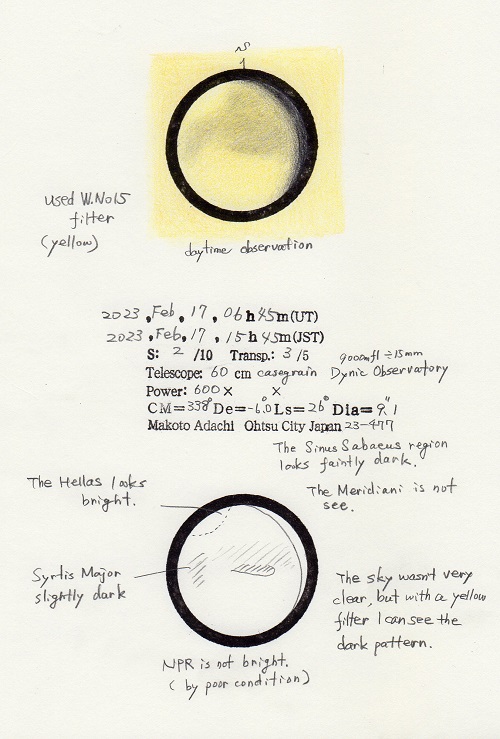 S
used W.No15
filter
(yellow)
daytime observation
2023, Feb, 17, 06h45m(UT)
2023, Feb, 17, 15h45m(JST)
S: 2 /10 Transp.: 3 /5
9000mfl ÷15mm
Telescope: 60 cm casegrain Dynic Observatory
Power: 600× ×
CM=338° De=-6.0 Ls=26° Dia=9".1
Makoto Adachi Ohtsu City Japan 23-477
The Sinus Sabaeus region
looks faintly dark.
The Hellas looks
bright.
The Meridiani is not
see.
Syrtis Major
slightly dark
The sky wasn't very
clear, but with a yellow
filter I can see the
dark pattern.
NPR is not bright.
(by poor condition)